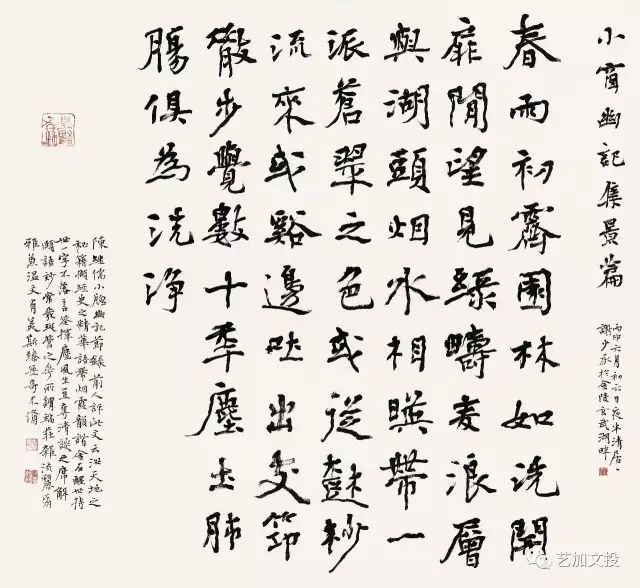 小窗幽記集景篇
丙申六月初六日夜半清居
謝少承於金陵玄武湖畔
春雨初霽園林如洗開
扉閒望見綠疇麥浪層
與湖頭烟水相暎帶一
派蒼翠之色或從樹杪
流來或谿邊吐出支筇
散步覺數十年塵土肺
腸俱為洗淨
陳繼儒小窗幽記節錄前人評此文云泄天地之
秘籍擷經史之精華語帶烟霞韻諧金石醒世持
世一字不落言筌揮麈風生直奪清談之席解
頤語妙常發斑管之花所謂端莊雜流麗爾
雅兼溫文有美斯臻無奇不備
艺加文投